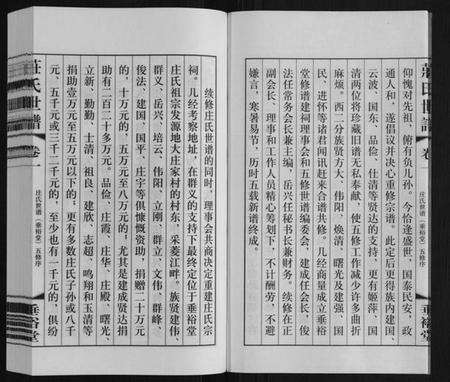 莊氏世譜
卷一
庄氏世谱（垂裕堂）五修序
垂裕堂
仰愧对先祖，俯有负儿孙。今恰逢盛世，国泰民安，政
通人和，遂倡议并决心重修宗谱。此定后更得族内建国、
云波、国东、品俭、仕清等贤达的支持，更有姬萍、国
清两位将珍藏旧谱无私奉献，使五修工作减少许多曲折
麻烦。西二分族贤方大、伟阳、焕清、曙光及建强、国
民、进怀等诸君闻讯赶来合谱共修。几经商量成立垂裕
堂修谱建祠理事会和五修世谱编委会，建成任会长、俊
法任常务会长兼主编，岳兴任秘书长兼财务。续修在正
副会长、理事和工作人员精心筹划下，不计酬劳，不避
嫌言，寒暑易节，历时五载新谱终成。
续修庄氏世谱的同时，理事会共商决定重建庄氏宗
祠。几经考察地址，在群义的支持下最终定位于垂裕堂
庄氏祖宗发源地大庄家村的村东，采菱江畔。族贤建伟、
群义、岳兴、培云、伟阳、立刚、群立、文伟、群峰、
俊法、建国、国平、庄宇等俱慷慨资助，捐赠二十万元
的，十万元的，五万元至八万元的。尤其是建成贤达捐
助有二百二十多万元。品俭、庄霞、庄华、庄殿、曙光、
立新、勤勤、士清、祖良、建欣、志超、鸣翔和玉清等
捐助壹万元至五万元以下的。更有多数庄氏子孙或八千
元、五千元或三千二千元的，至少也有一千元的，俱纷
莊氏世譜
卷一
庄氏世谱（垂裕堂）五修序
垂裕堂